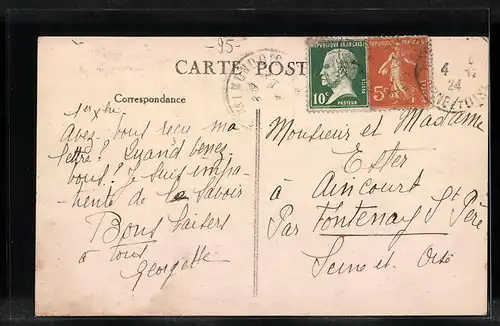 -95-
CARTE POST
Correspondance
RÉPUBLIQUE FRANÇAISE
10c
POSTES
PASTEUR
RÉPUBLIQUE FRANÇAISE
5c
POSTES
4
24
Avez-vous reçu ma
lettre? Quand venez
vous? Je suis impa-
tiente de le savoir
Bons baisers
à tous
Georgette
Monsieur et Madame
Ester
à Aincourt
Par Fontenay St Père
Seine et Oise